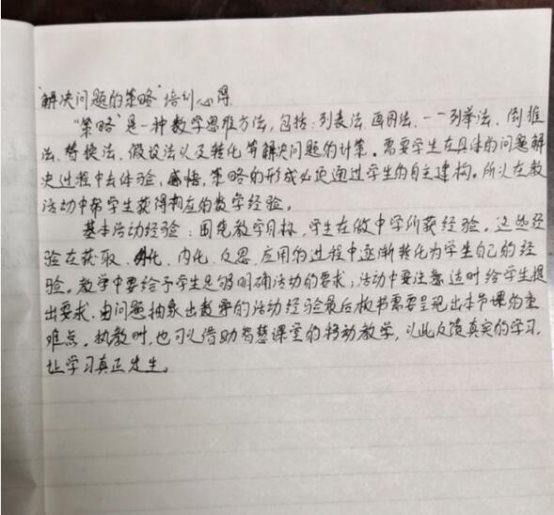 "解决问题的策略"培训心得
"策略"是一种数学思维方法,包括:列表法、画图法、一一列举法、倒推
法、替换法、假设法以及转化等解决问题的计策。需要学生在具体的问题解
决过程中去体验、感悟,策略的形成必须通过学生的自主建构。所以在教
活动中帮学生获得相应的数学经验。
基本活动经验:围绕教学目标,学生在做中学所获经验。这些经
验在获取、外化、内化、反思、应用的过程中逐渐转化为学生自己的经
验。教学中要给予学生足够明确活动的要求,活动中要注意适时给学生提
出要求,由问题抽象出数学的活动经验最后板书需要呈现出本节课的重
难点。执教时,也可以借助智慧课堂的移动教学,以此反馈真实的学习,
让学习真正发生。